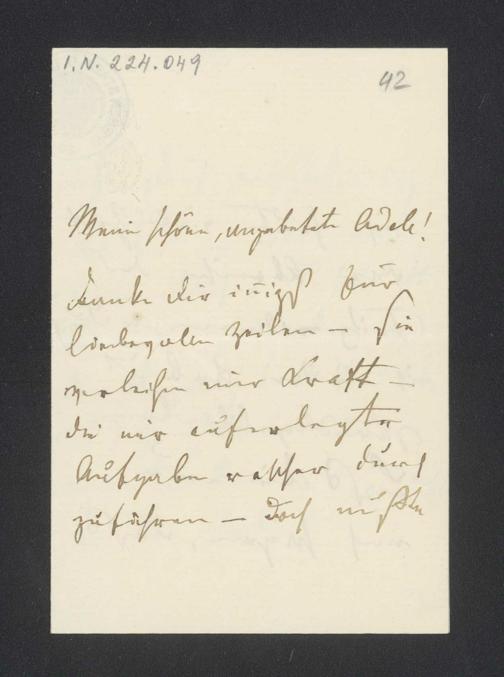 I.N. 224.049
42
Meine schöne, angebetete Adele!
Danke dir innigst für
liebevollen Zeilen – sie
verleihen mir Kraft –
die mir auferlegte
Aufgabe rascher durch
zuführen – doch müßte